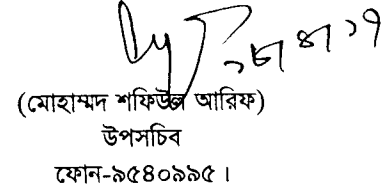 ১৮/৪/১৭
(মোহাম্মদ শফিউল আরিফ)
উপসচিব
ফোন-৯৫৪০৯৯৫।